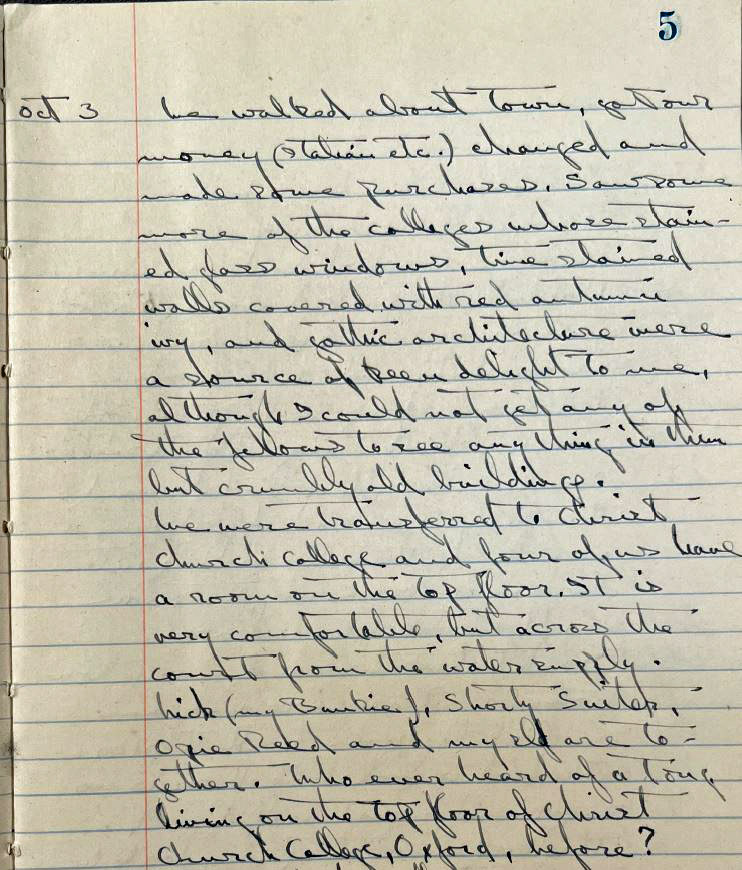 5
Oct 3 We walked about town, got our
money (station etc.) changed and
made some purchases. Saw some
more of the colleges whose stain-
ed glass windows, time stained
walls covered with red autumn
ivy, and gothic architecture were
a source of keen delight to me,
although I could not get any of
the fellows to see any thing in them
but crumbly old buildings.
We were transferred to Christ
Church College and four of us have
a room on the top floor. It is
very comfortable, but across the
court from the water supply.
(my Bunkie), Shorty
Opie Reed and myself are to-
gether. Who ever heard of a
living on the top floor of Christ
Church College, Oxford, before?